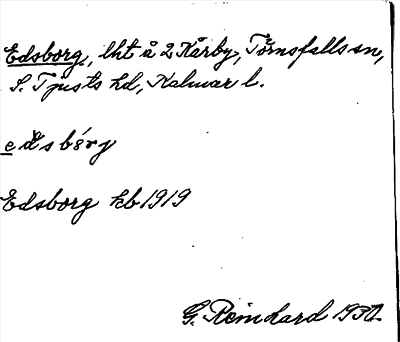 Edsborg, lht å 2 Kårby, Törnsfalls sn,
S. Tjusts hd, Kalmar l.
edsbóry
Edsborg kb 1919
G. Reinhard 1932